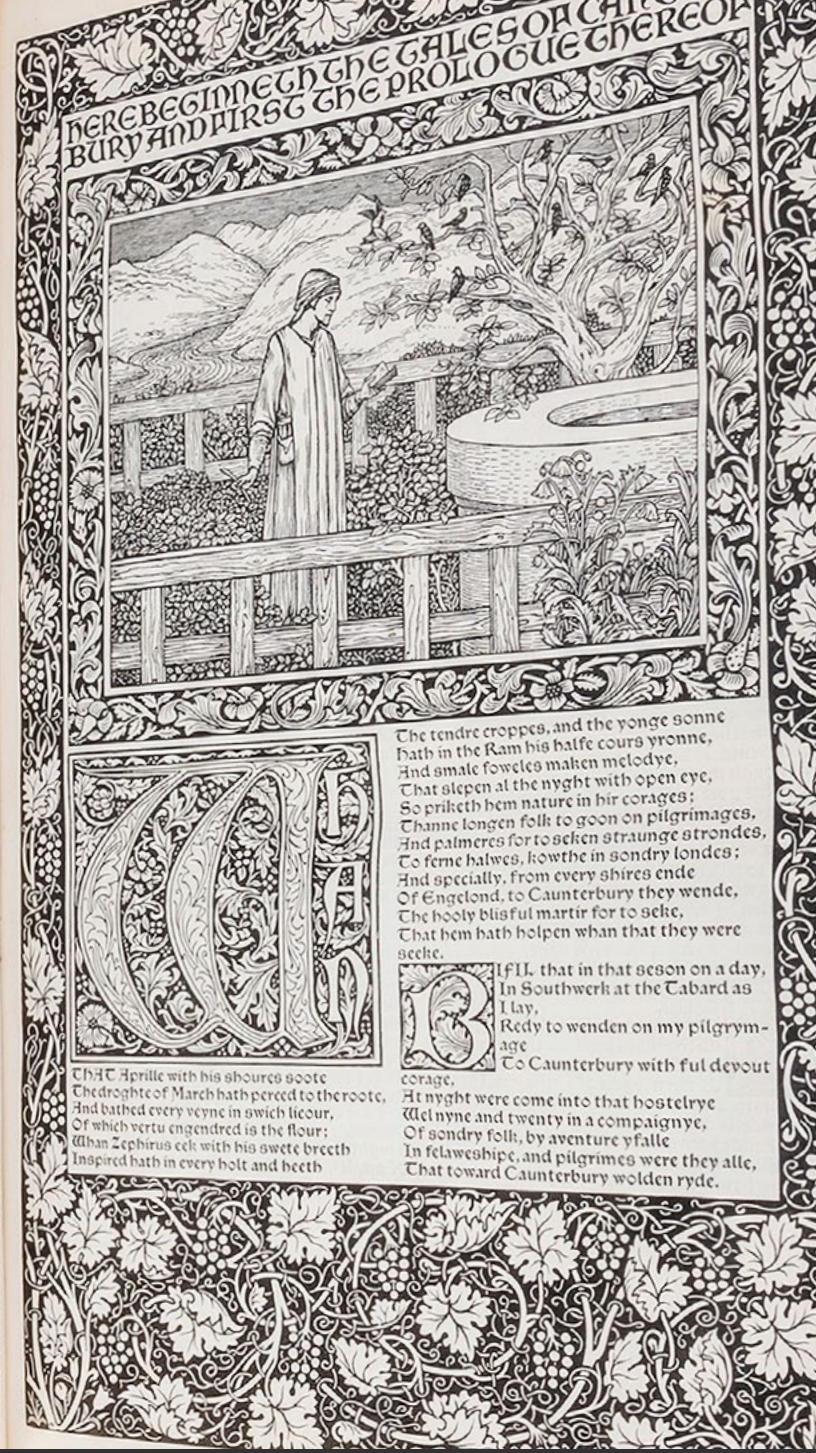 HERE BEGINNETH THE TALES OF CANTER
BURY AND FIRST THE PROLOGUE THEREOF
WHAN
THAT Aprille with his shoures soote
The droghte of March hath perced to the roote,
And bathed every veyne in swich licour,
Of which vertu engendred is the flour;
Whan Zephirus eek with his swete breeth
Inspired hath in every holt and heeth
The tendre croppes, and the yonge sonne
Hath in the Ram his halfe cours yronne,
And smale foweles maken melodye,
That slepen al the nyght with open eye,
So priketh hem nature in hir corages;
Thanne longen folk to goon on pilgrimages,
And palmeres for to seken straunge strondes,
To ferne halwes, kowthe in sondry londes;
And specially, from every shires ende
Of Engelond, to Caunterbury they wende,
The hooly blisful martir for to seke,
That hem hath holpen whan that they were
seeke.
BIFIL that in that seson on a day,
In Southwerk at the Tabard as
I lay,
Redy to wenden on my pilgrym-
age
To Caunterbury with ful devout
corage,
At nyght were come into that hostelrye
Wel nyne and twenty in a compaignye,
Of sondry folk, by aventure yfalle
In felaweshipe, and pilgrimes were they alle,
That toward Caunterbury wolden ryde.